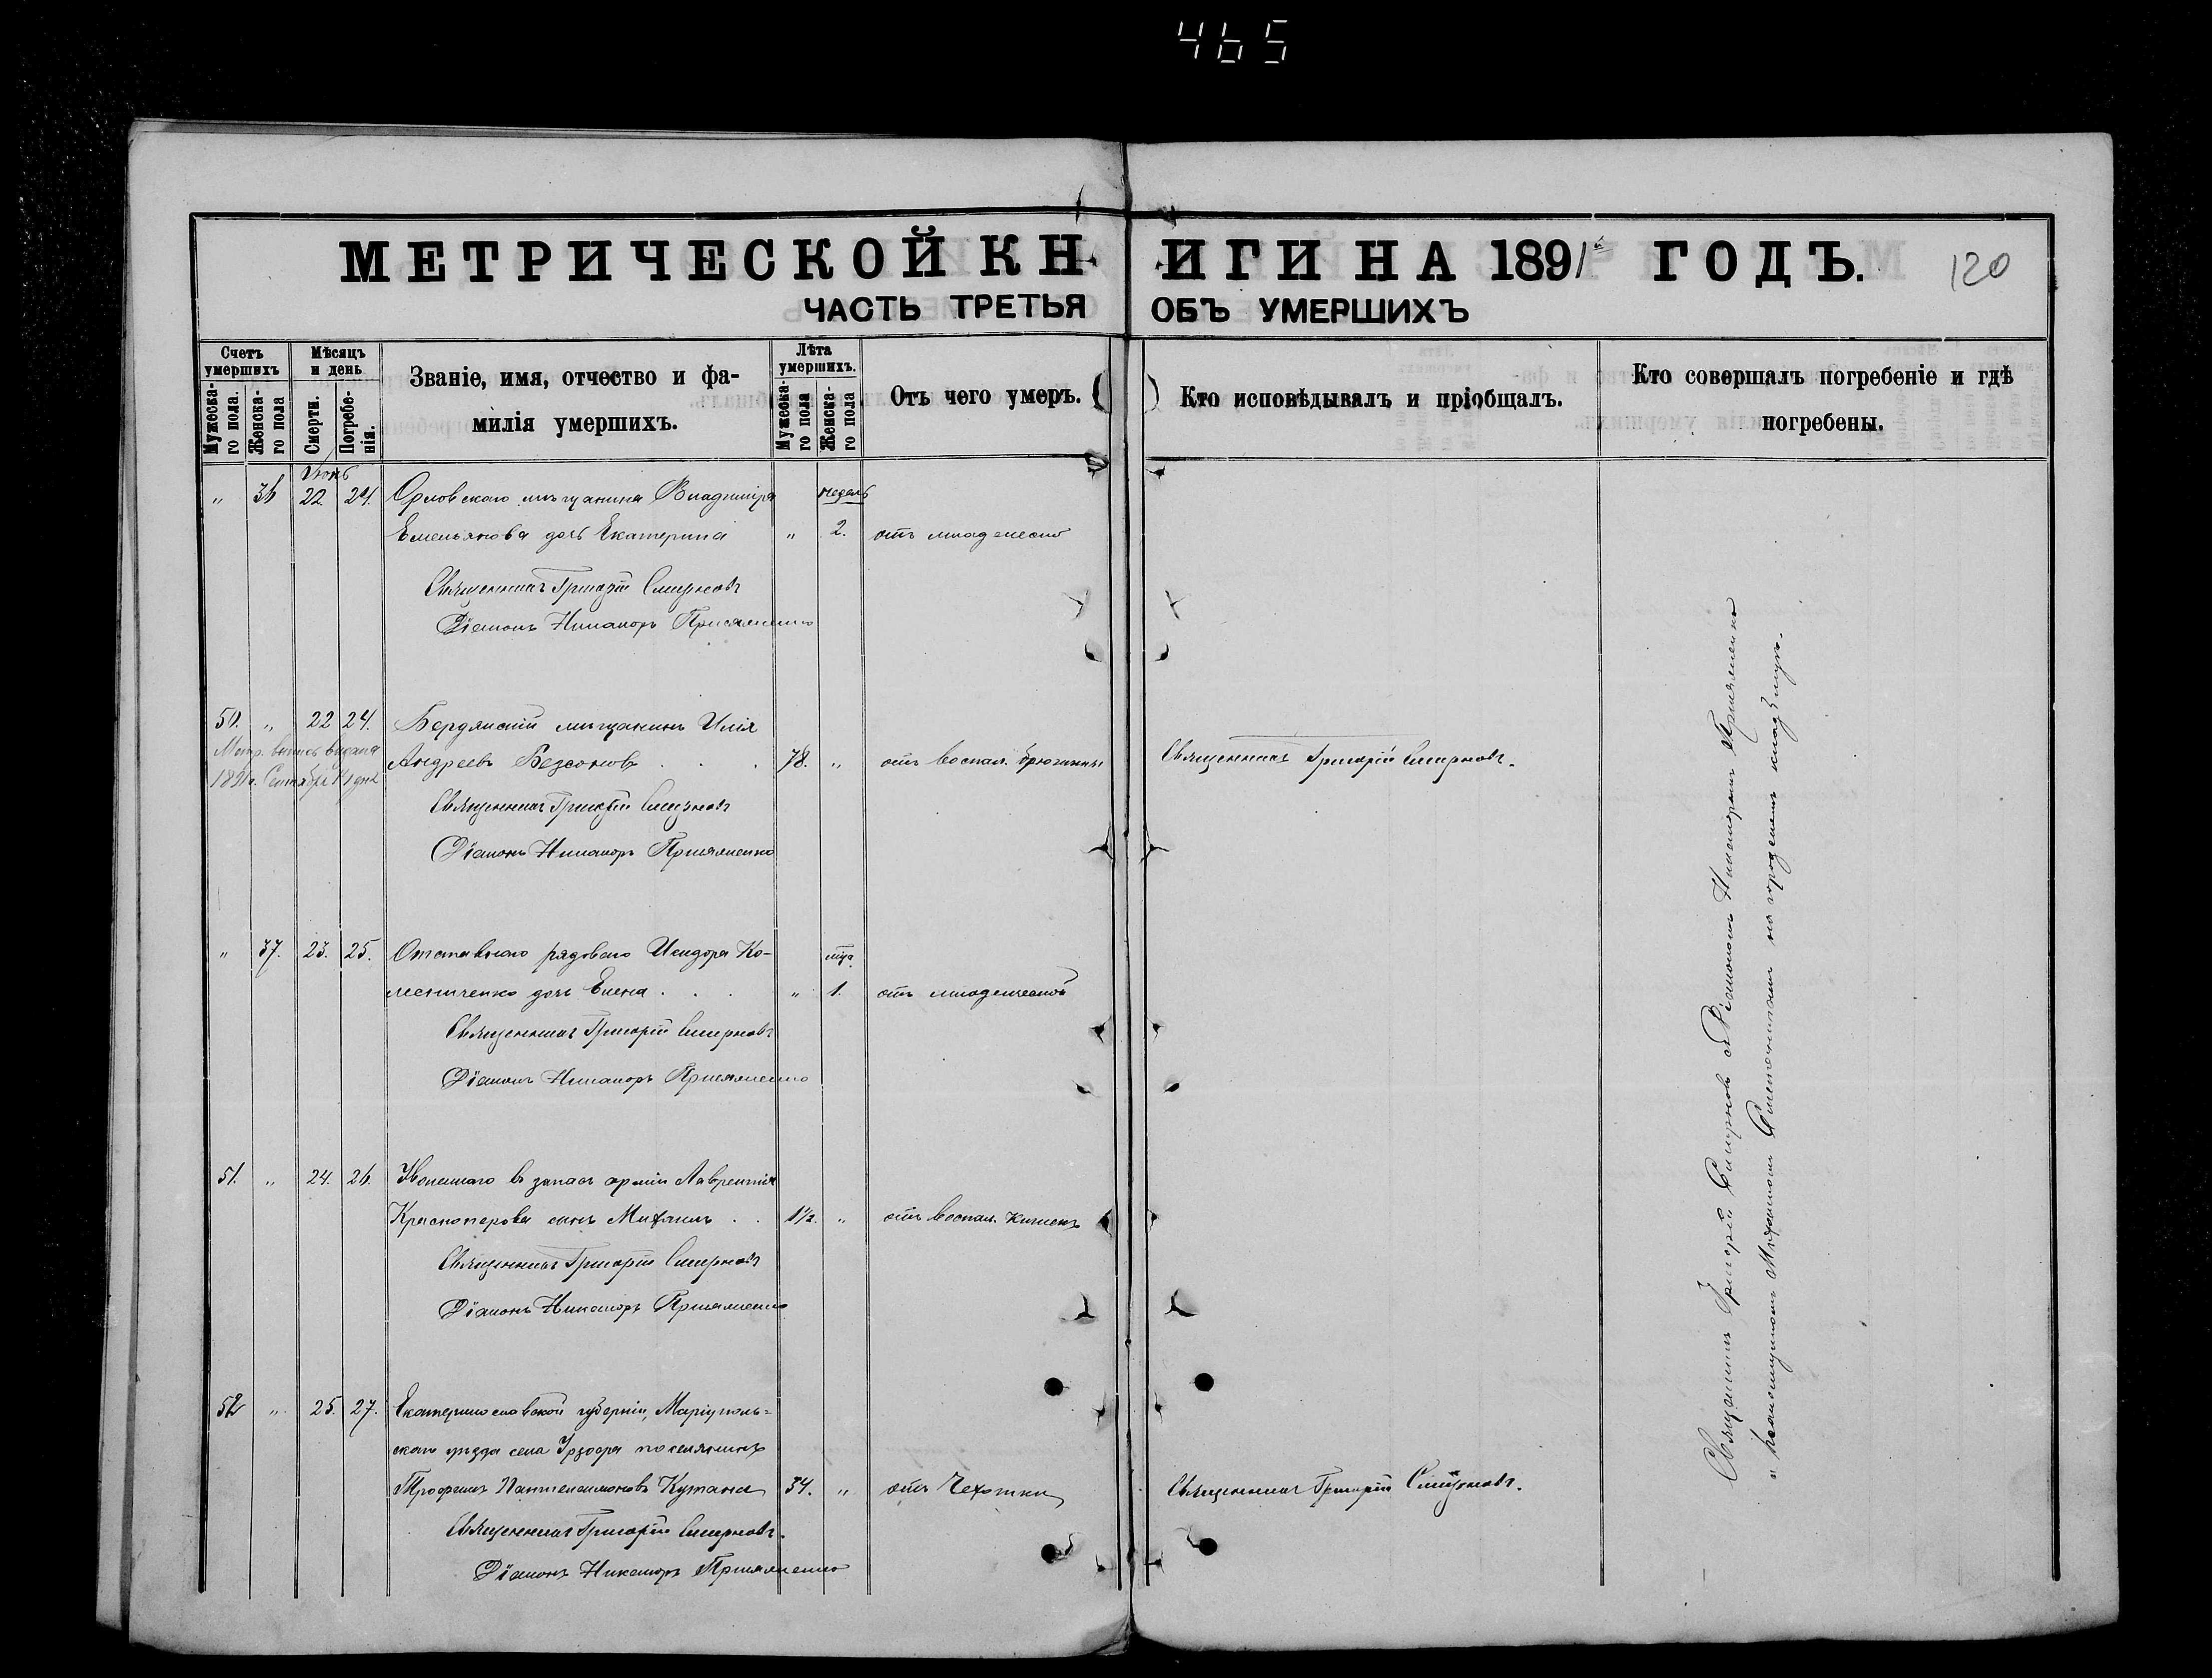 465
МЕТРИЧЕСКОЙ КНИГИ НА 1891й ГОДЪ.
120
ЧАСТЬ ТРЕТЬЯ ОБЪ УМЕРШИХЪ
Счетъ умершихъ
Мужеска-го пола.
Женска-го пола
Мѣсяцъ и день
Смерти.
Погребе-нія.
Званіе, имя, отчество и фа-
милія умершихъ.
Лѣта умершихъ.
Мужеска-го пола
Женска-го пола
Отъ чего умеръ.
Кто исповѣдывалъ и пріобщалъ.
Кто совершалъ погребеніе и гдѣ
погребены.
Іюнь
" 36 22 24. Орловскаго мѣщанина Владиміра недѣль
Емельянова дочь Екатерина " 2. отъ младенческой
Священникъ Григорій Смирновъ
Діаконъ Никаноръ Присяженко
50. " 22 24. Бердянскій мѣщанинъ Илія
Метр. выпись выдана
1891г. Сентября 14 дня
Андреевъ Безсоновъ . . . 78. " отъ воспал. брюшины Священникъ Григорій Смирновъ.
Священникъ Григорій Смирновъ
Діаконъ Никаноръ Присяженко
" 37. 23. 25. Отставного рядового Исидора Ко-
лесниченко дочь Елена . . . " 1. отъ младенческой
Священникъ Григорій Смирновъ
Діаконъ Никаноръ Присяженко
51. " 24. 26. Уволеннаго въ запасъ арміи Лаврентія
Красноперова сынъ Михаилъ . . 1½. " отъ воспал. кишекъ
Священникъ Григорій Смирновъ
Діаконъ Никаноръ Присяженко
52 " 25. 27. Екатеринославской губерніи, Маріуполь-
скаго уѣзда села Урзофа поселянинъ
Трофимъ Пантелеимоновъ Кутана 34. " отъ Чехотки Священникъ Григорій Смирновъ.
Священникъ Григорій Смирновъ.
Діаконъ Никаноръ Присяженко
Священникъ Григорій Смирновъ съ Діакономъ Никаноромъ Присяженко
и псаломщикомъ на городскомъ кладбищѣ.